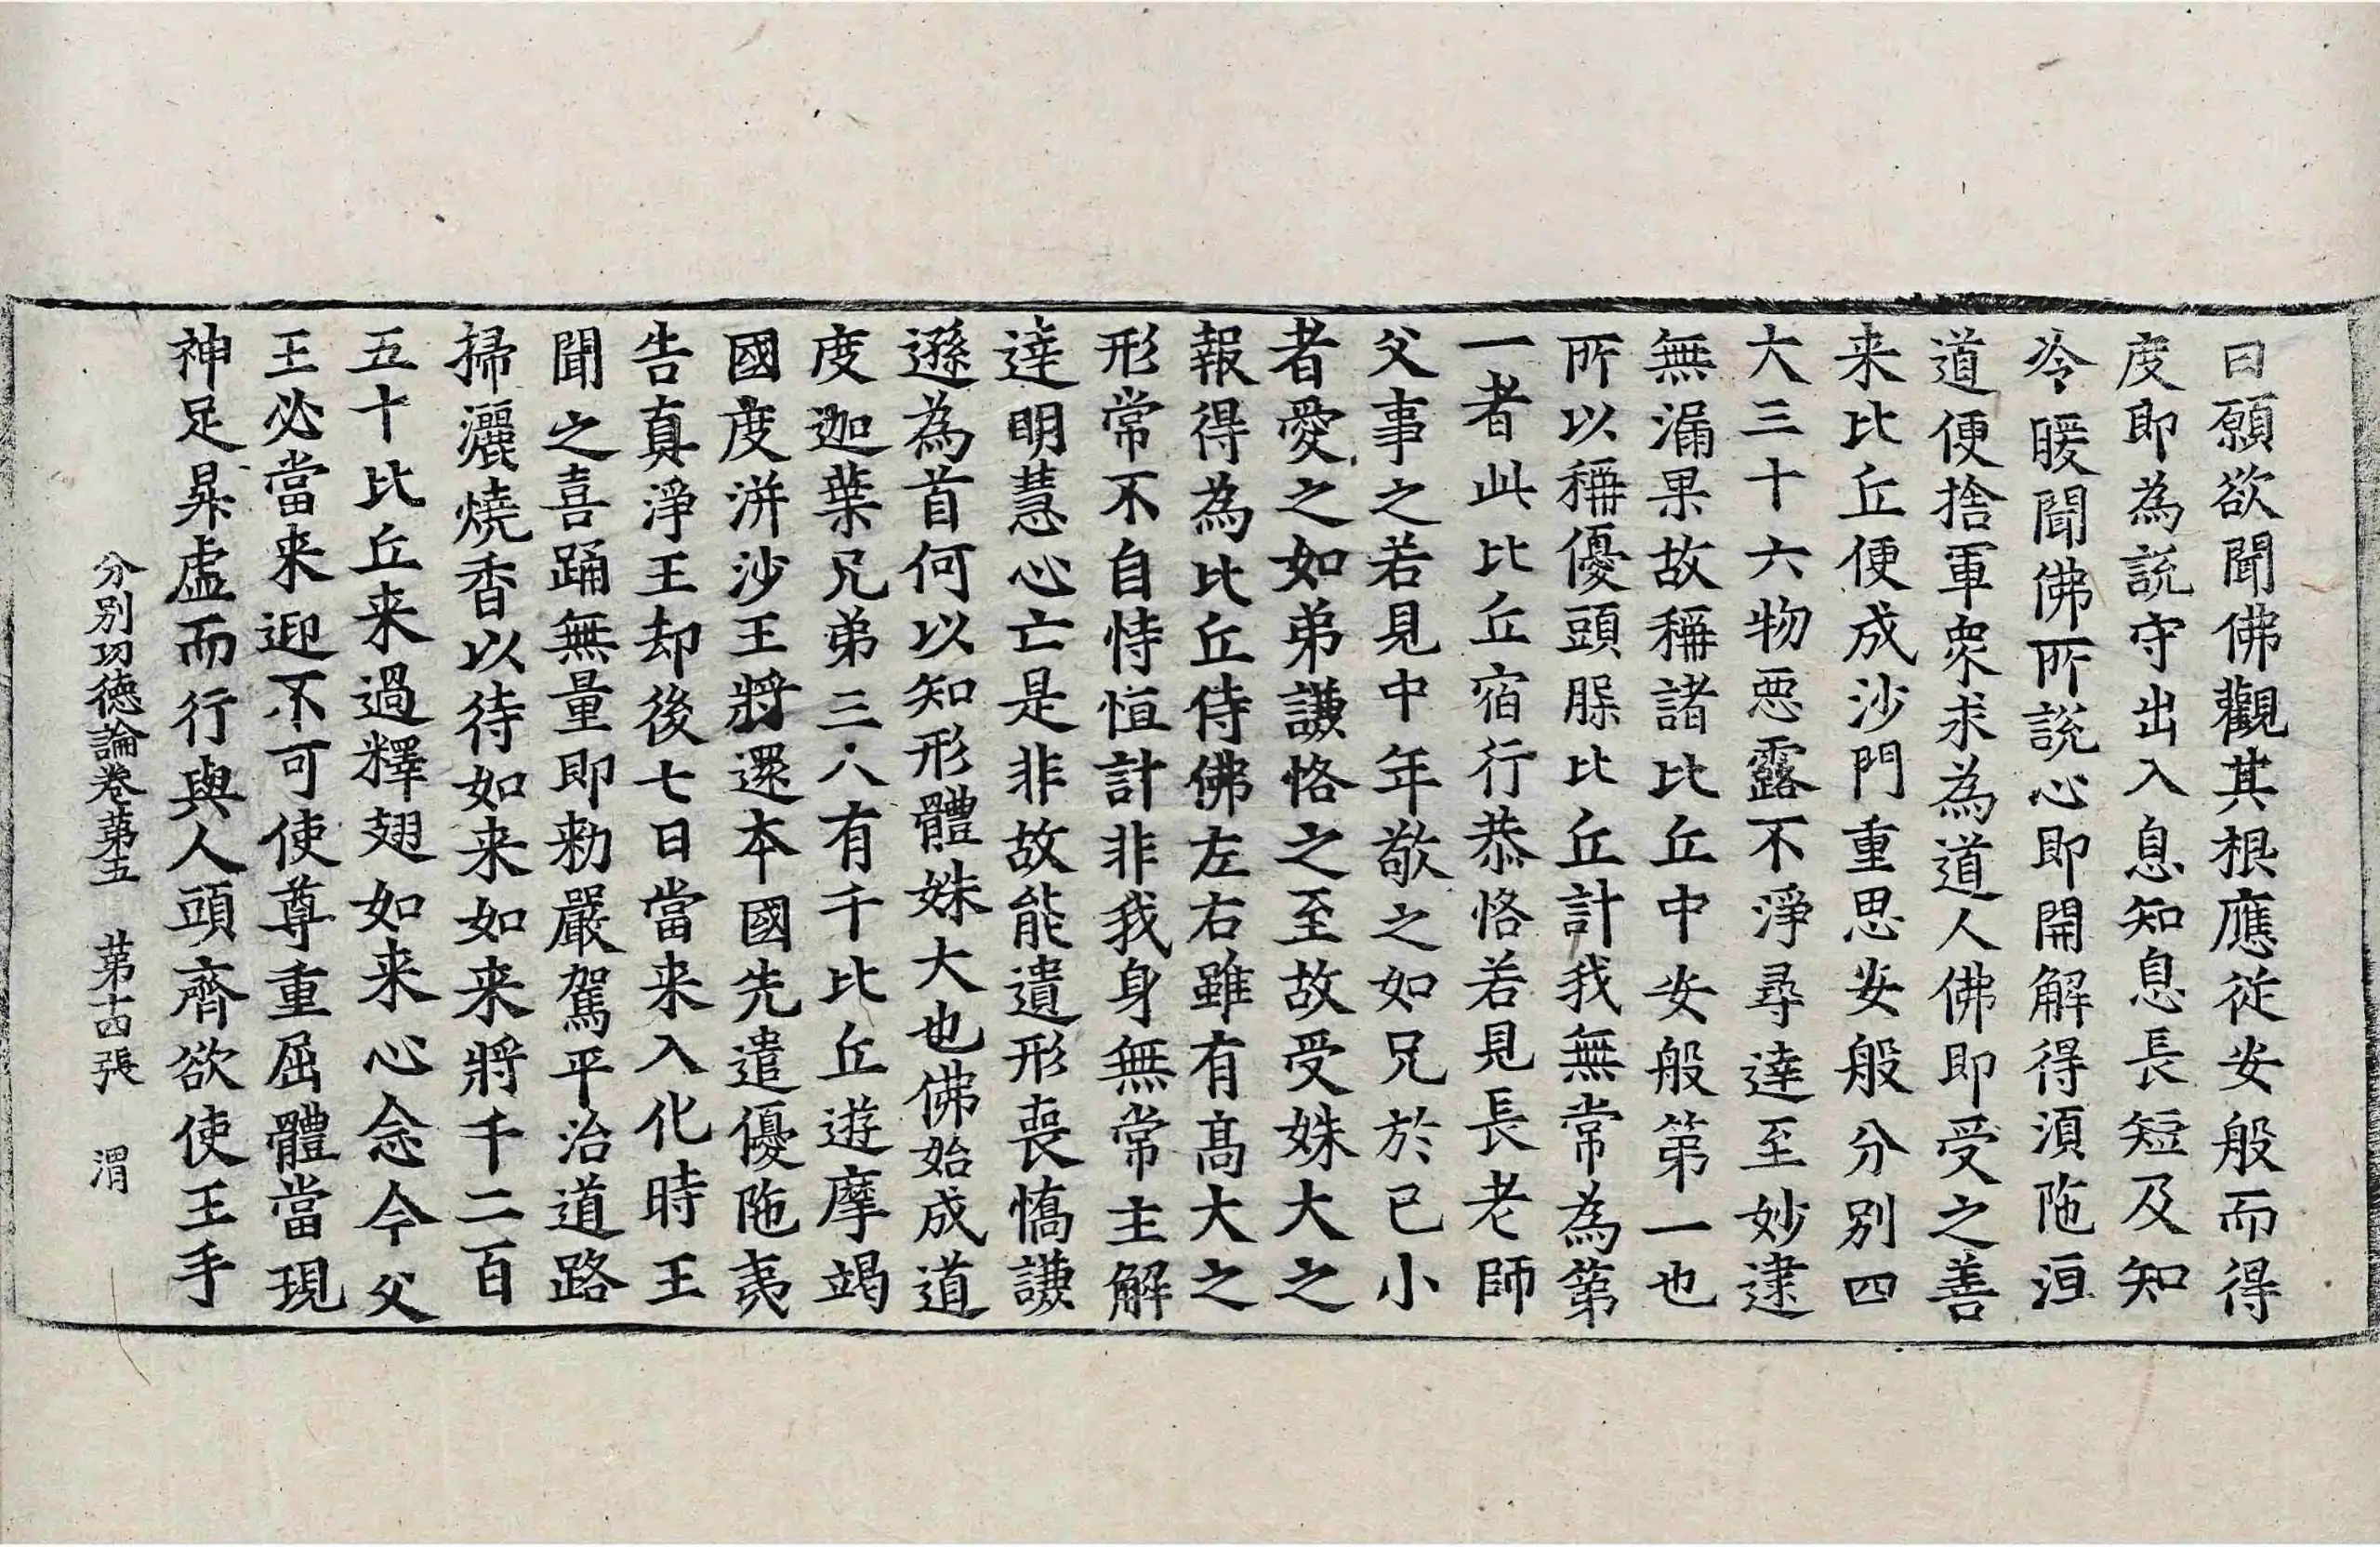 曰願欲聞佛觀其根應從安般而得
度即為說守出入息知息長短及知
冷暖聞佛所說心即開解得須陁洹
道便捨軍衆求為道人佛即受之善
来比丘便成沙門重思安般分別四
大三十六物惡露不淨尋達至妙逮
無漏果故稱諸比丘中安般第一也
所以稱優頭脲比丘計我無常為第
一者此比丘宿行恭恪若見長老師
父事之若見中年敬之如兄於已小
者愛之如弟謙恪之至故受姝大之
報得為比丘侍佛左右雖有高大之
形常不自恃恒計非我身無常主解
達明慧心亡是非故能遺形喪憍謙
遜為首何以知形體姝大也佛始成道
度迦葉兄弟三人有千比丘遊摩竭
國度洴沙王將還本國先遣優陁夷
告真淨王却後七日當来入化時王
聞之喜踊無量即勑嚴駕平治道路
掃灑燒香以待如来如来將千二百
五十比丘来過釋翅如来心念今父
王必當来迎不可使尊重屈體當現
神足昇虛而行與人頭齊欲使王手
分別功德論卷第五　第十四張　渭